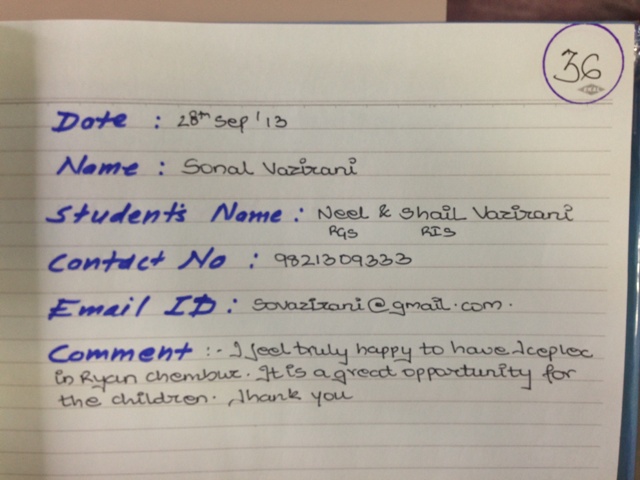 36
Date : 28th Sep '13
Name : Sonal Vazirani
Student's Name : Neel & Shail Vazirani
RGS RIS
Contact No : 9821309333
Email ID : sovazirani@gmail.com.
Comment :- I feel truly happy to have Iceplex
in Ryan chembur. It is a great opportunity for
the children. Thank you